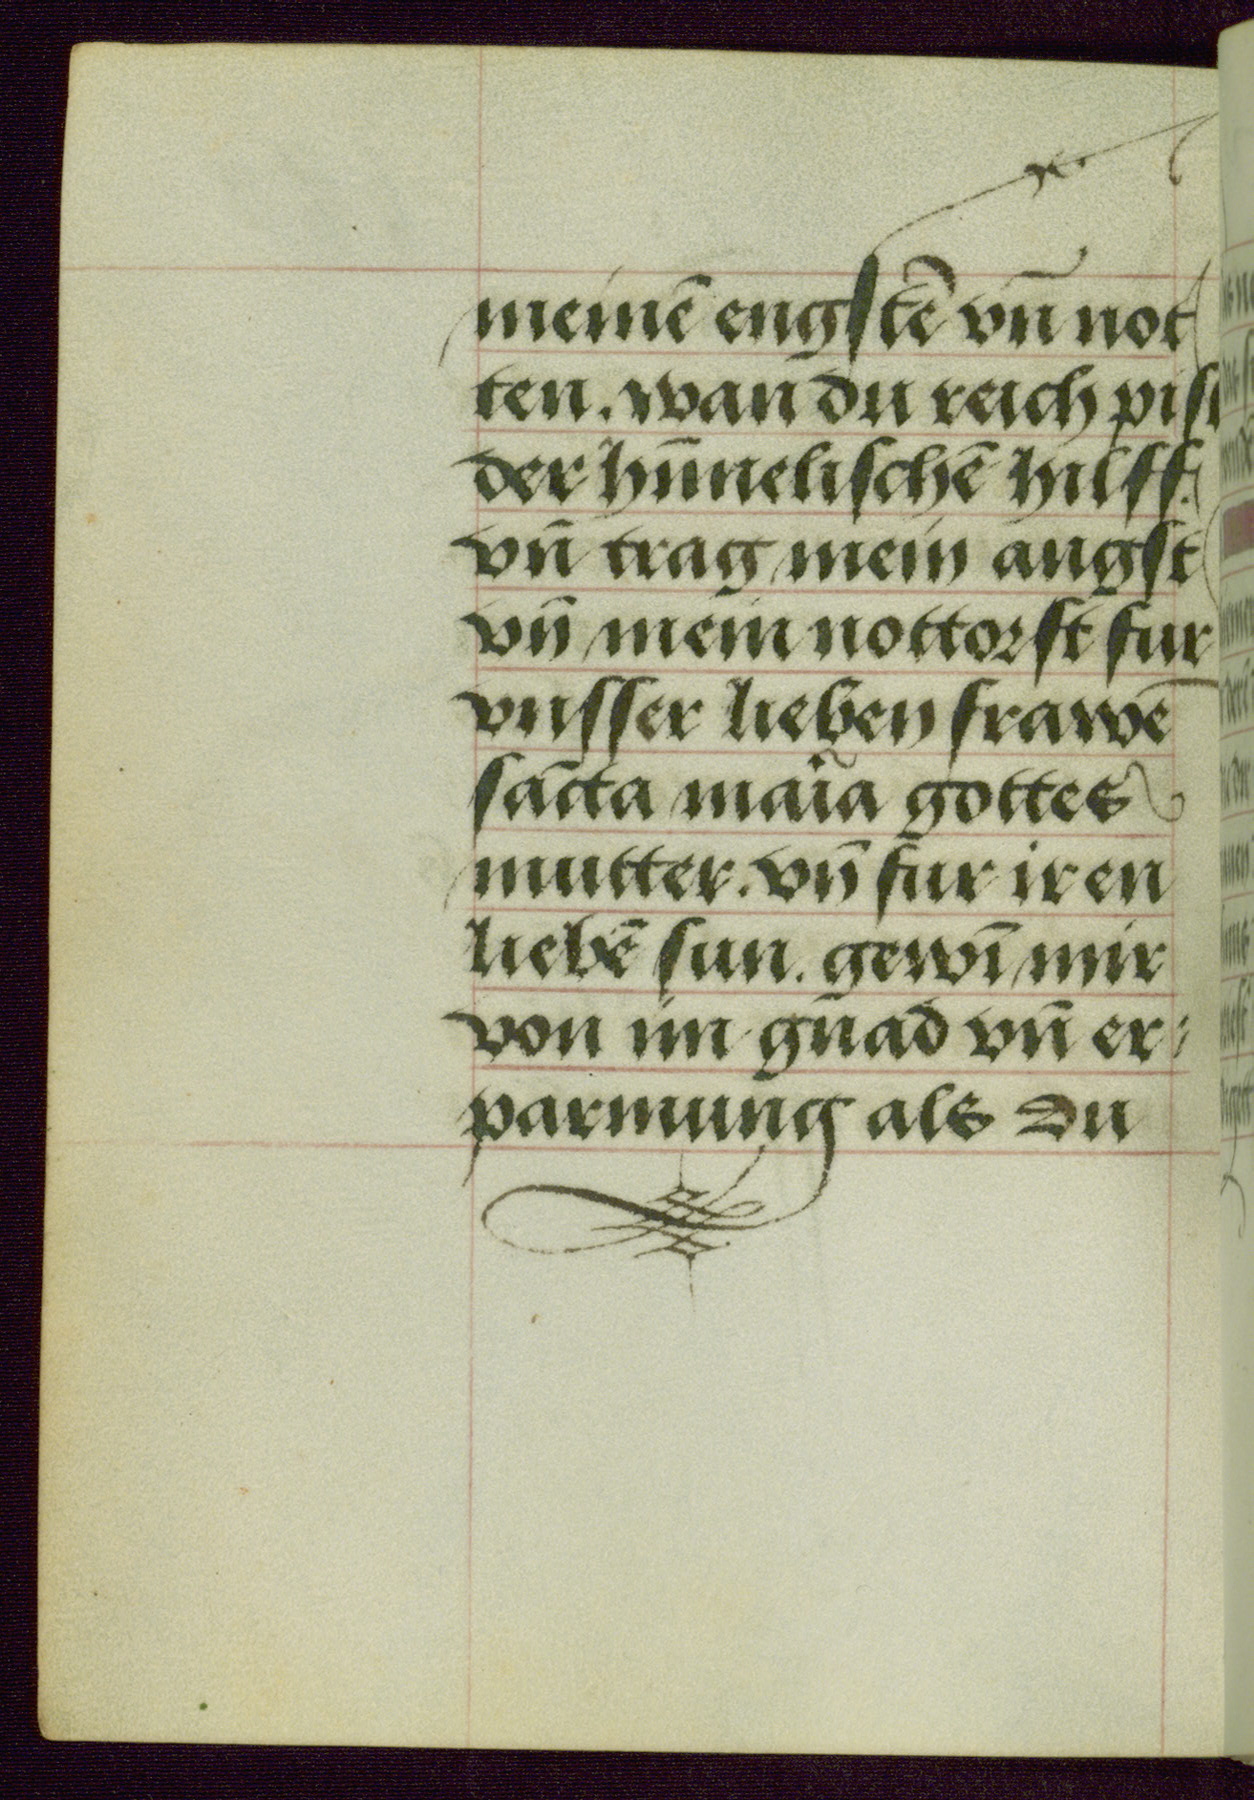 meinē engstē vn̄ not
ten. wan du reich pist
der hīmelischē hilff.
vn̄ trag mein angst
vn̄ mein nottorft fur
vnsser lieben frawē
sācta maīa gottes
mutter. vn̄ fur iren
liebē sun. gewī mir
von im gn̄ad vn̄ er:
parmung als du